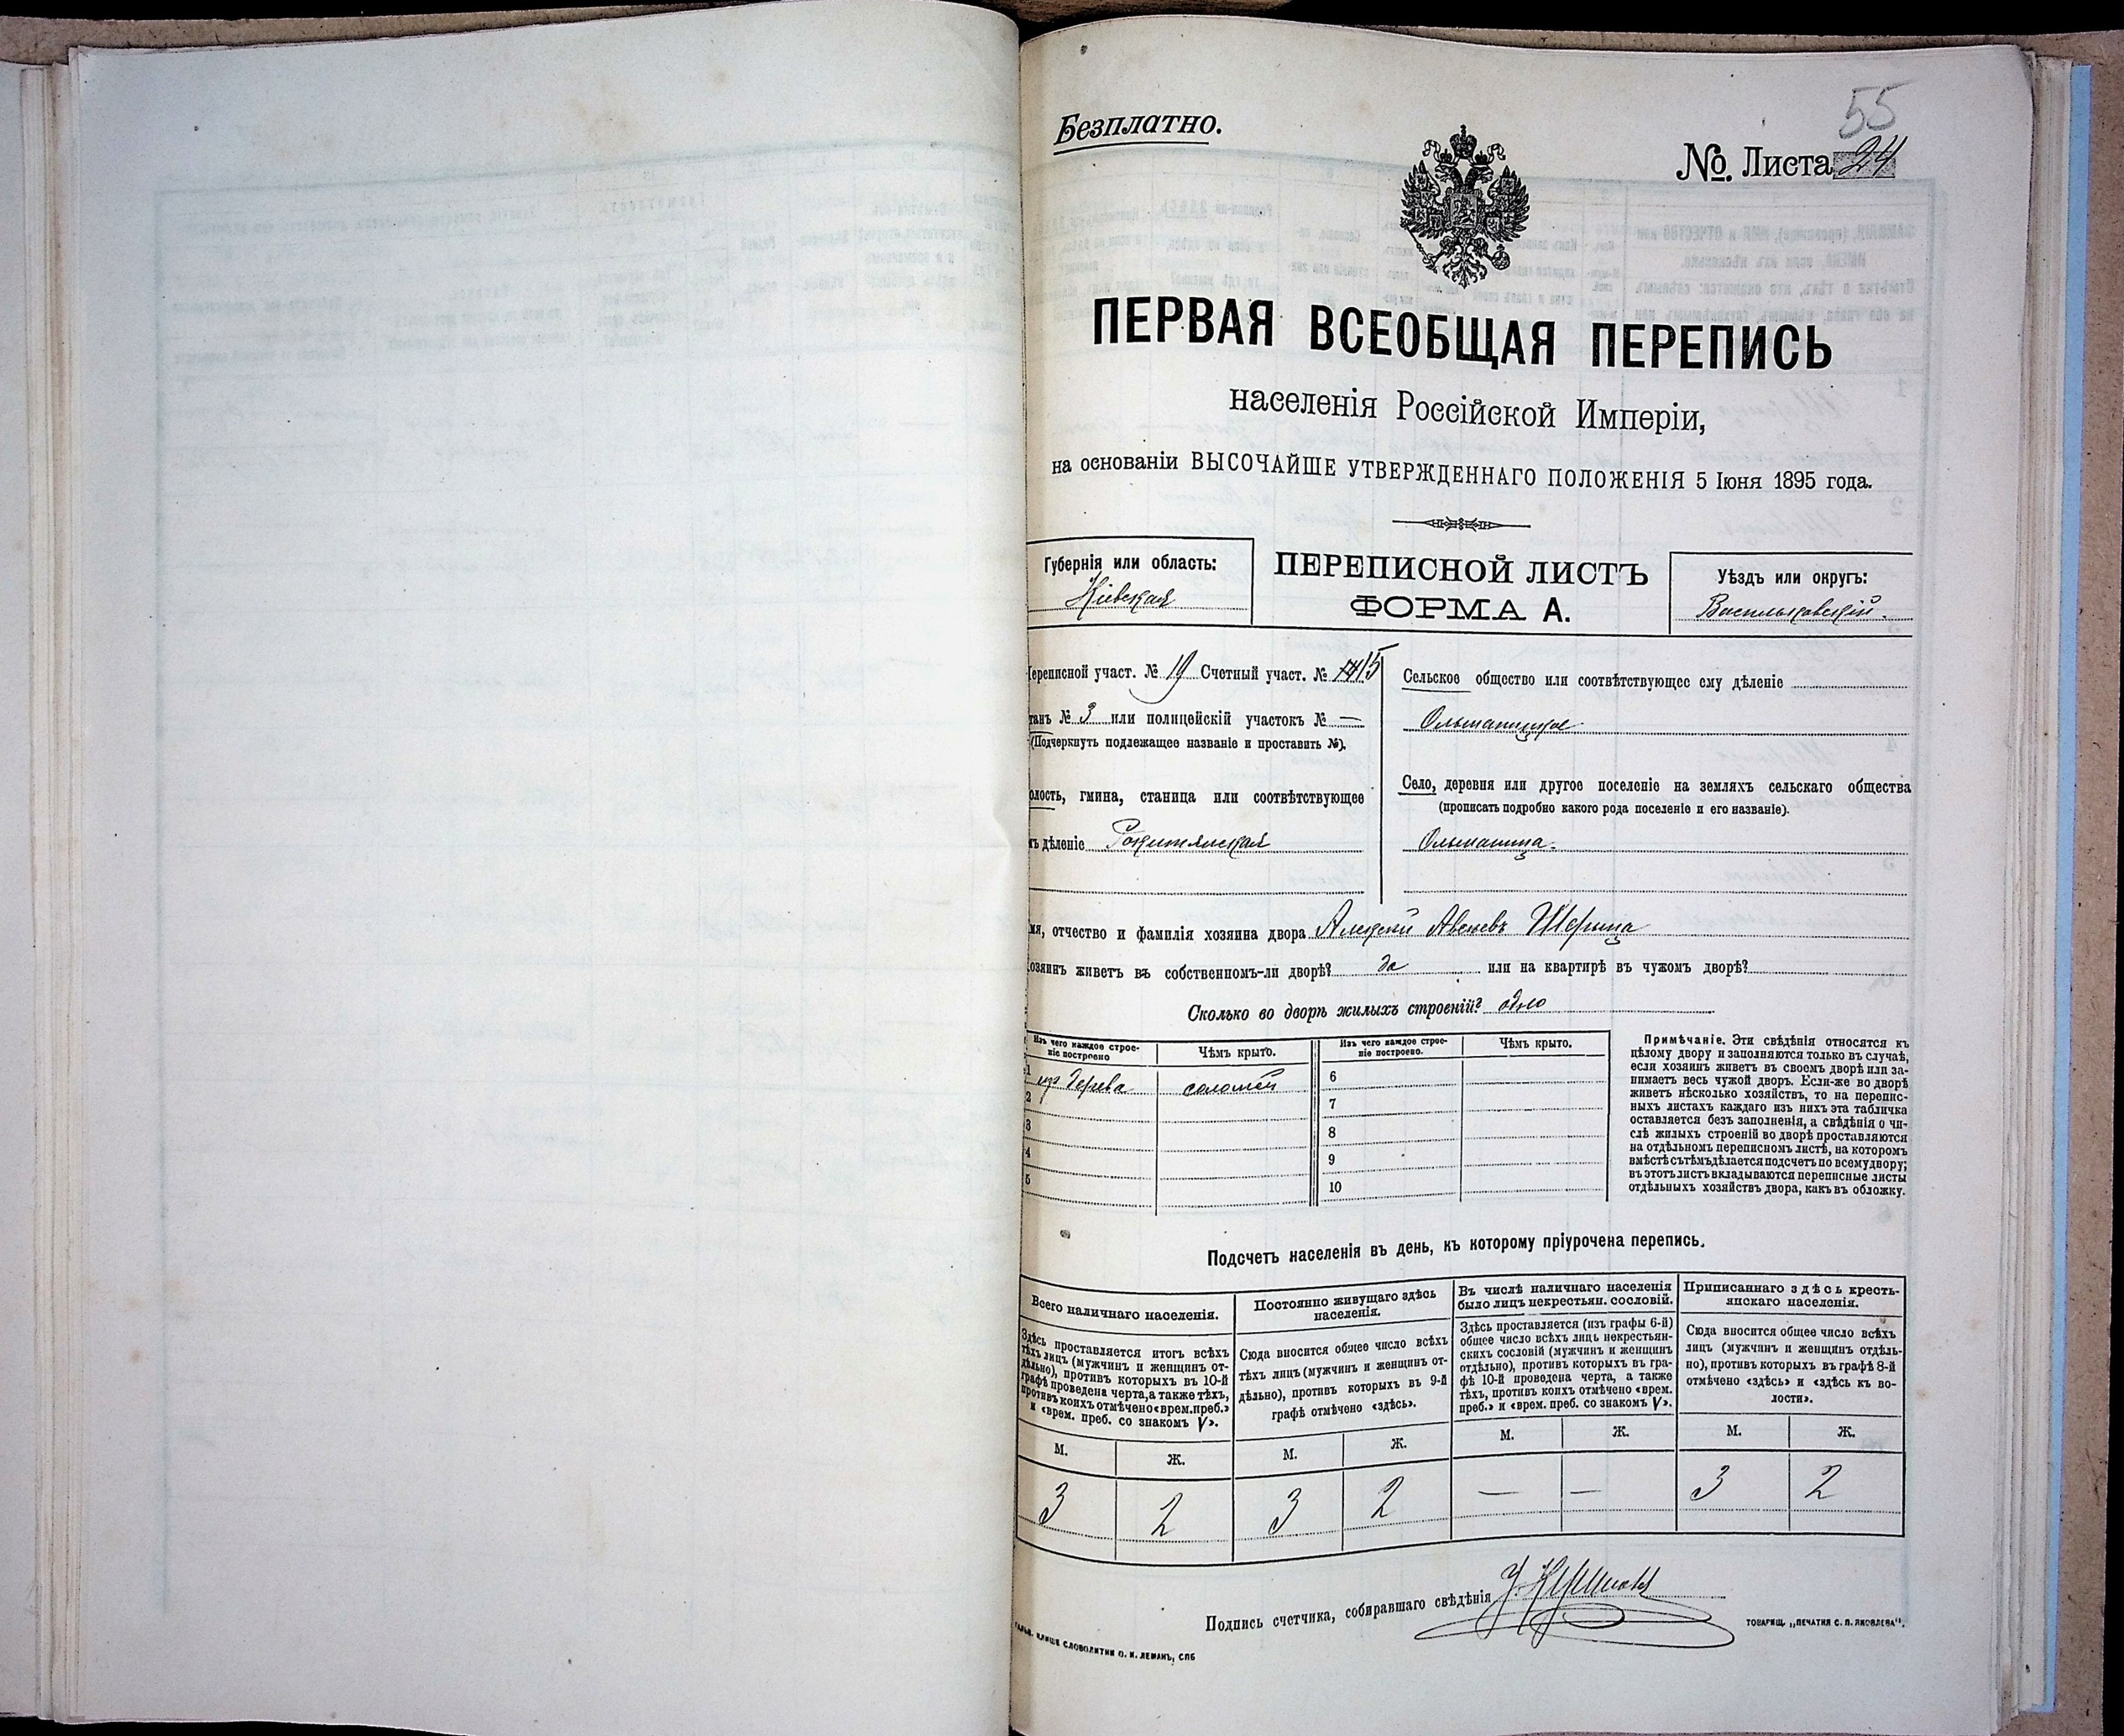 55
Безплатно.
№ Листа 24
ПЕРВАЯ ВСЕОБЩАЯ ПЕРЕПИСЬ
населенія Россійской Имперіи,
на основаніи ВЫСОЧАЙШЕ УТВЕРЖДЕННАГО ПОЛОЖЕНІЯ 5 Іюня 1895 года.
Губернія или область:
Кіевская
ПЕРЕПИСНОЙ ЛИСТЪ
ФОРМА А.
Уѣздъ или округъ:
Васильковскій.
Переписной участ. № 19 Счетный участ. № 15
танъ № 3 или полицейскій участокъ № —
(Подчеркнуть подлежащее названіе и проставить №).
олость, гмина, станица или соотвѣтствующее
мъ дѣленіе Рокитянская
Сельское общество или соотвѣтствующее ему дѣленіе
Ольшаницкое
Село, деревня или другое поселеніе на земляхъ сельскаго общества
(прописать подробно какого рода поселеніе и его названіе).
Ольшаница.
мя, отчество и фамилія хозяина двора Алексѣй
озяинъ живетъ въ собственномъ-ли дворѣ? да или на квартирѣ въ чужомъ дворѣ?
Сколько во дворѣ жилыхъ строеній? одно
Изъ чего каждое строе-
ніе построено
Чѣмъ крыто.
Изъ чего каждое строе-
ніе построено.
Чѣмъ крыто.
1 изъ дерева соломой
2
3
4
5
6
7
8
9
10
Примѣчаніе. Эти свѣдѣнія относятся къ
цѣлому двору и заполняются только въ случаѣ,
если хозяинъ живетъ въ своемъ дворѣ или за-
нимаетъ весь чужой дворъ. Если-же во дворѣ
живетъ нѣсколько хозяйствъ, то на перепис-
ныхъ листахъ каждаго изъ нихъ эта табличка
оставляется безъ заполненія, а свѣдѣнія о чи-
слѣ жилыхъ строеній во дворѣ проставляются
на отдѣльномъ переписномъ листѣ, на которомъ
вмѣстѣ съ тѣмъ дѣлается подсчетъ по всему двору;
въ этотъ листъ вкладываются переписные листы
отдѣльныхъ хозяйствъ двора, какъ въ обложку.
Подсчетъ населенія въ день, къ которому пріурочена перепись.
Всего наличнаго населенія.
Здѣсь проставляется итогъ всѣхъ
тѣхъ лицъ (мужчинъ и женщинъ от-
дѣльно), противъ которыхъ въ 10-й
графѣ проведена черта, а также тѣхъ,
противъ коихъ отмѣчено «врем. преб.»
и «врем. преб. со знакомъ V».
Постоянно живущаго здѣсь
населенія.
Сюда вносится общее число всѣхъ
тѣхъ лицъ (мужчинъ и женщинъ от-
дѣльно), противъ которыхъ въ 9-й
графѣ отмѣчено «здѣсь».
Въ числѣ наличнаго населенія
было лицъ некрестьян. сословій.
Здѣсь проставляется (изъ графы 6-й)
общее число всѣхъ лицъ некрестьян-
скихъ сословій (мужчинъ и женщинъ
отдѣльно), противъ которыхъ въ гра-
фѣ 10-й проведена черта, а также
тѣхъ, противъ коихъ отмѣчено «врем.
преб.» и «врем. преб. со знакомъ V».
Приписаннаго здѣсь кресть-
янскаго населенія.
Сюда вносится общее число всѣхъ
лицъ (мужчинъ и женщинъ отдѣль-
но), противъ которыхъ въ графѣ 8-й
отмѣчено «здѣсь» и «здѣсь къ во-
лости».
М. Ж. М. Ж. М. Ж. М. Ж.
3 2 3 2 — — 3 2
Подпись счетчика, собиравшаго свѣдѣнія
КЛИШЕ СЛОВОЛИТНИ О. И. ЛЕМАНЪ, СПБ
ТОВАРИЩ. „ПЕЧАТНЯ С. П. ЯКОВЛЕВА“.